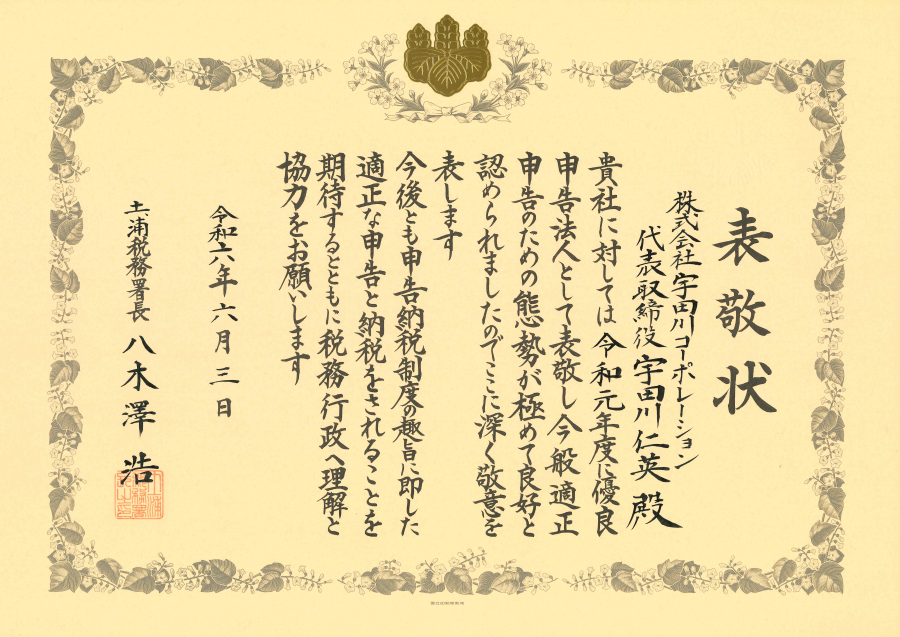 表敬状
株式会社宇田川コーポレーション
代表取締役 宇田川仁英殿
貴社に対しては令和元年度に優良
申告法人として表敬し今般適正
申告のための態勢が極めて良好と
認められましたのでここに深く敬意を
表します
今後とも申告納税制度の趣旨に即した
適正な申告と納税をされることを
期待するとともに税務行政へ理解と
協力をお願いします
令和六年六月三日
土浦税務署長 八木澤 浩